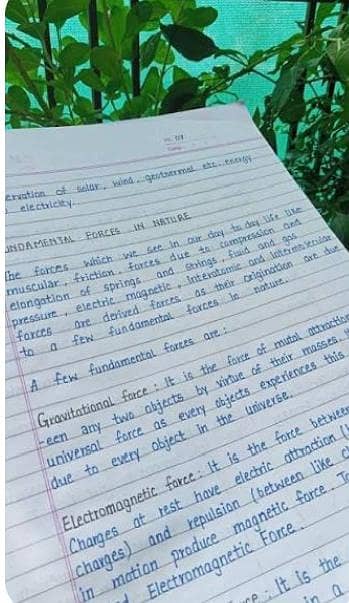 of solar, wind, geothermal etc. energy
electricity.
FUNDAMENTAL FORCES IN NATURE
The forces which we see in our day to day life like
muscular, friction, forces due to compression and
elongation of springs and strings, fluid and gas
pressure, electric, magnetic, interatomic and intermolecular
forces are derived forces as their origination are due
to a few fundamental forces in nature.
A few fundamental forces are :
Gravitational force : It is the force of mutal attraction
-een any two objects by virtue of their masses.
universal force as every objects experiences this
due to every object in the universe.
Electromagnetic force : It is the force between
Charges at rest have electric attraction (
charges) and repulsion (between like
in motion produce magnetic force.
Electromagnetic Force.
: It is the
in a